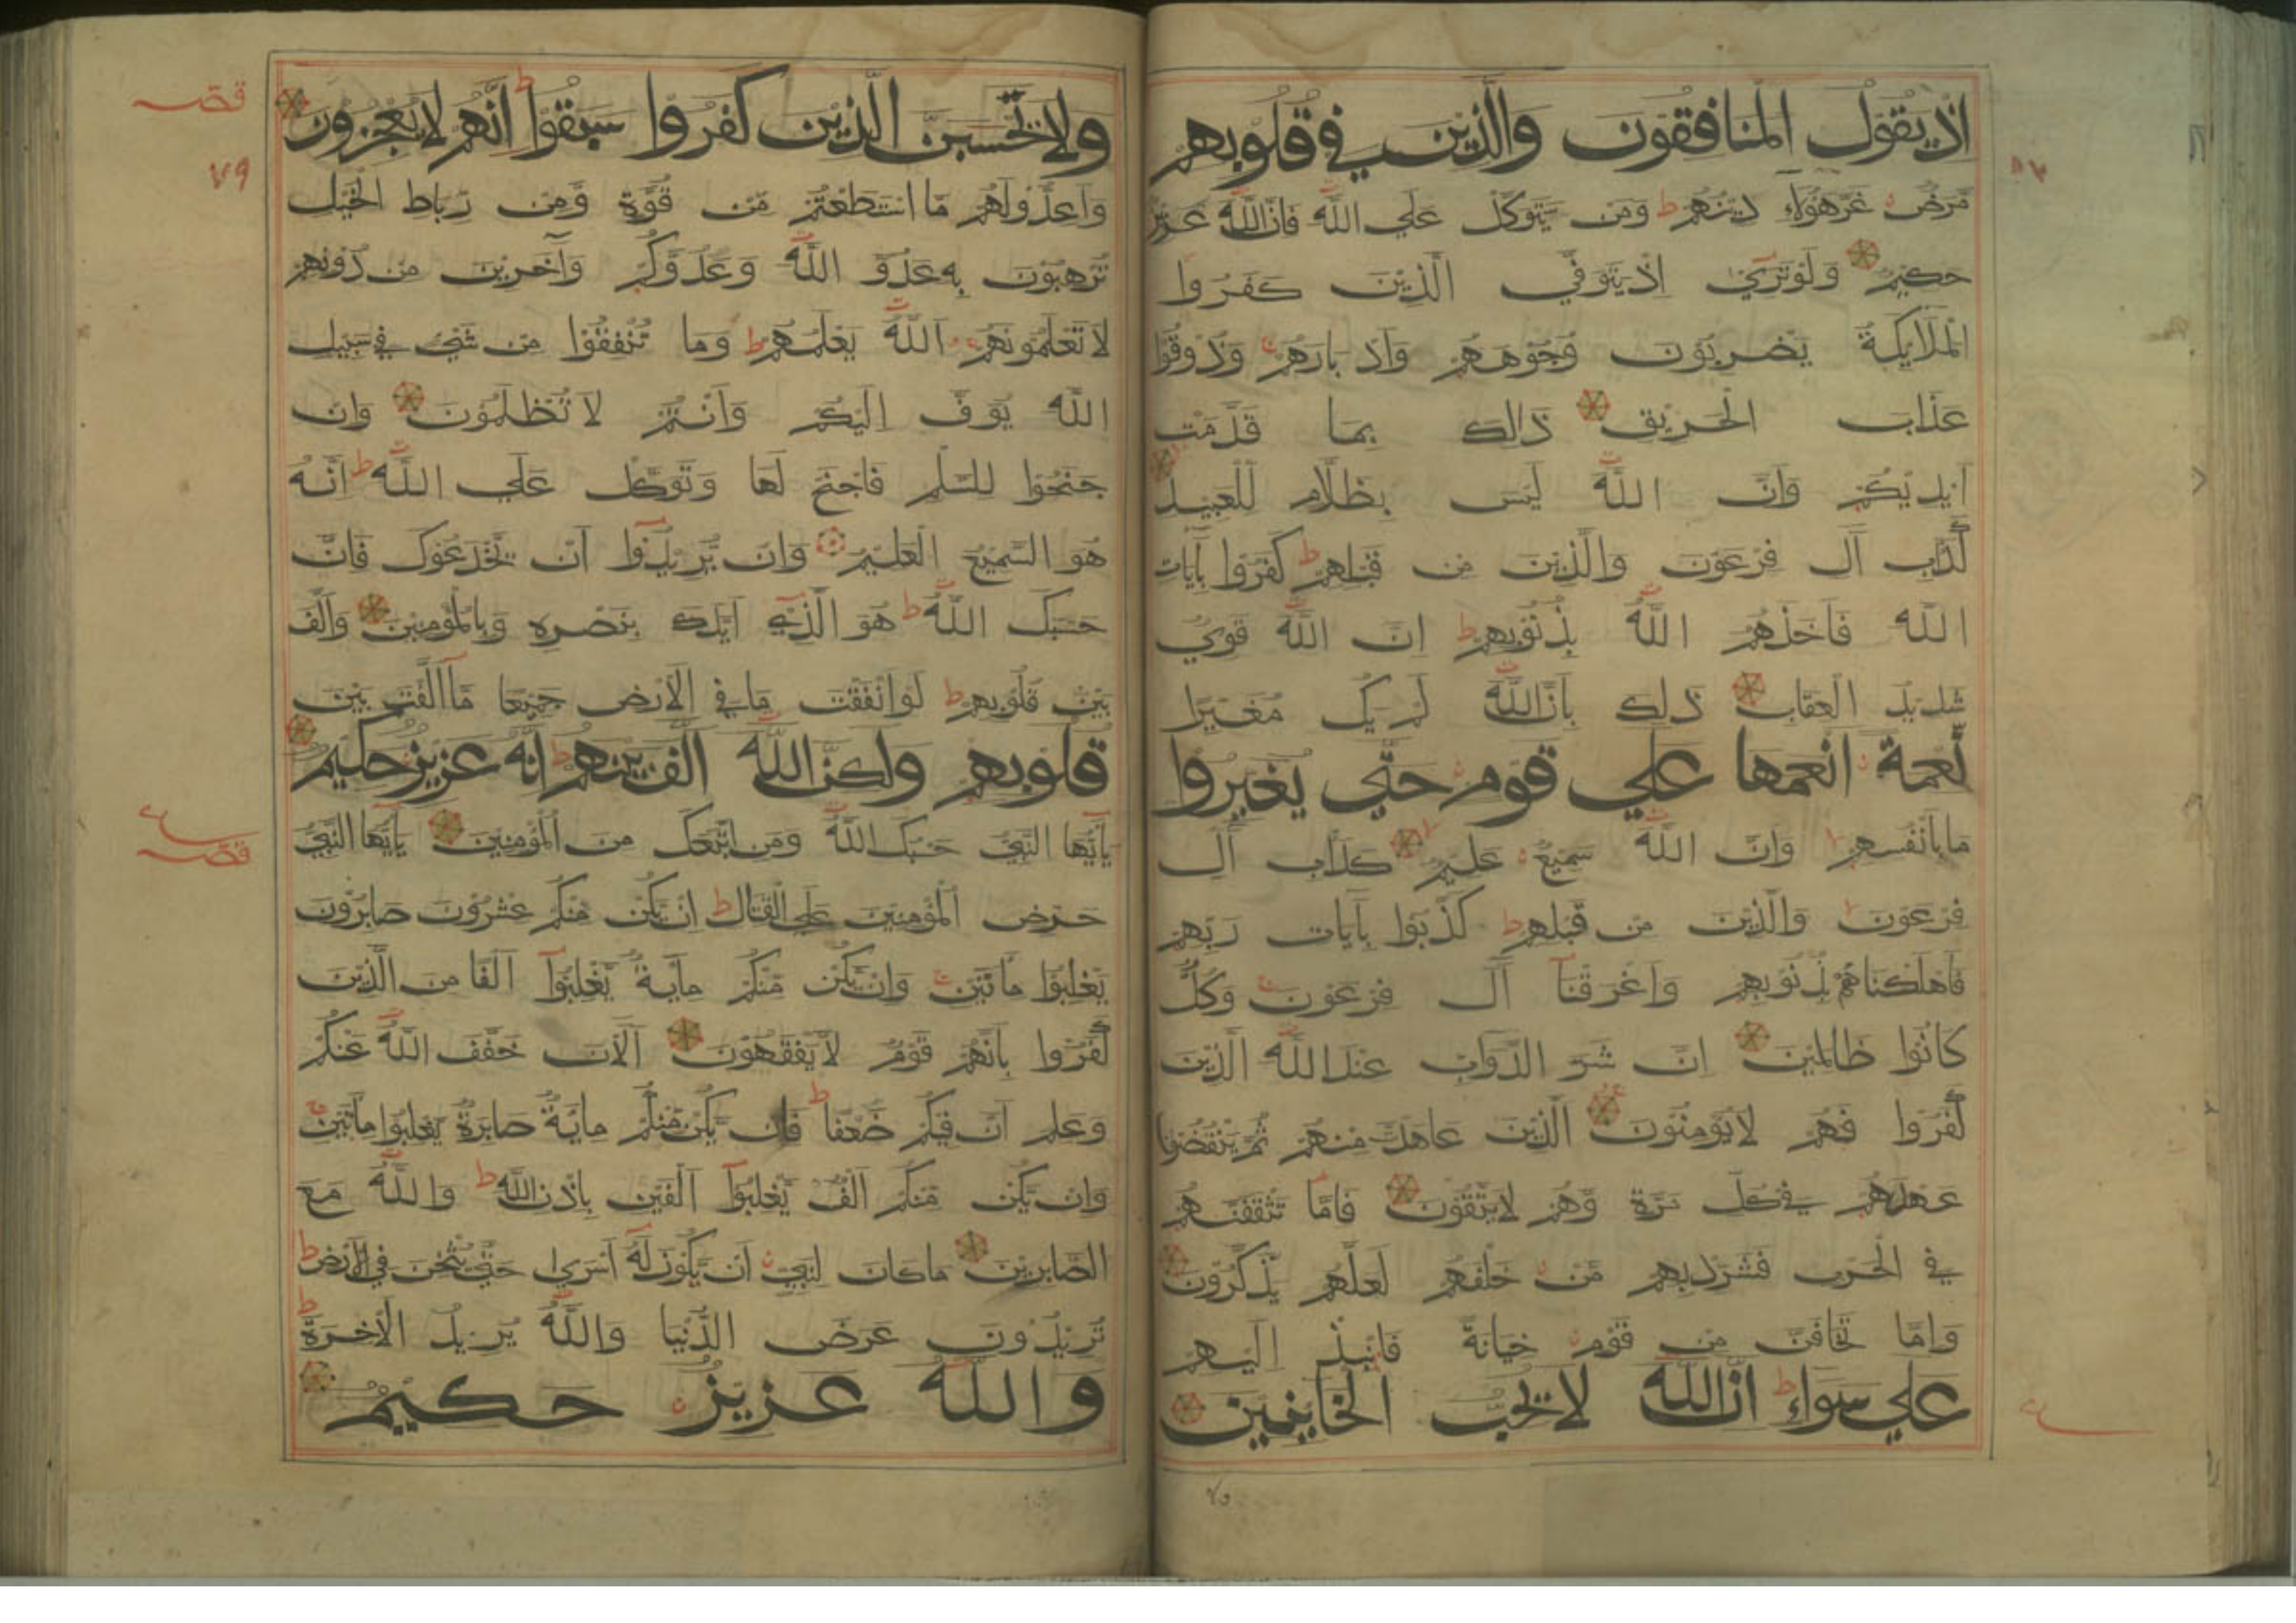 اذ يقول المنافقون والذين في قلوبهم
مرض غر هؤلاء دينهم ط ومن يتوكل علي الله فان الله عزيز
حكيم ولو تري اذ يتوفي الذين كفروا
الملايكة يضربون وجوههم وادبارهم وذوقوا
عذاب الحريق ذالك بما قدمت
ايديكم وان الله ليس بظلام للعبيد
كداب آل فرعون والذين من قبلهم ط كفروا بآيات
الله فاخذهم الله بذنوبهم ط ان الله قوي
شديد العقاب ذلك بان الله لم يك مغيرا
نعمة انعمها علي قوم حتي يغيروا
ما بانفسهم وان الله سميع عليم كداب آل
فرعون والذين من قبلهم ط كذبوا بآيات ربهم
فاهلكناهم بذنوبهم واغرقنا آل فرعون وكل
كانوا ظالمين ان شر الدواب عند الله الذين
كفروا فهم لا يؤمنون الذين عاهدت منهم ثم ينقضون
عهدهم في كل مرة وهم لا يتقون فاما تثقفنهم
في الحرب فشرد بهم من خلفهم لعلهم يذكرون
واما تخافن من قوم خيانة فانبذ اليهم
علي سواء ط ان الله لا يحب الخاينين
ولا تحسبن الذين كفروا سبقوا ط انهم لا يعجزون
واعدوا لهم ما استطعتم من قوة ومن رباط الخيل
ترهبون به عدو الله وعدوكم وآخرين من دونهم
لا تعلمونهم الله يعلمهم ط وما تنفقوا من شيء في سبيل
الله يوف اليكم وانتم لا تظلمون وان
جنحوا للسلم فاجنح لها وتوكل علي الله ط انه
هو السميع العليم وان يريدوا ان يخدعوك فان
حسبك الله ط هو الذي ايدك بنصره وبالمؤمنين والف
بين قلوبهم ط لو انفقت ما في الارض جميعا ما الفت بين
قلوبهم ولكن الله الف بينهم ط انه عزيز حكيم
يايها النبي حسبك الله ومن اتبعك من المؤمنين يايها النبي
حرض المؤمنين علي القتال ط ان يكن منكم عشرون صابرون
يغلبوا ماتين وان يكن منكم ماية يغلبوا الفا من الذين
كفروا بانهم قوم لا يفقهون آلان خفف الله عنكم
وعلم ان فيكم ضعفا ط فان يكن منكم ماية صابرة يغلبوا ماتين
وان يكن منكم الف يغلبوا الفين باذن الله ط والله مع
الصابرين ما كان لنبي ان يكون له اسري حتي يثخن في الارض ط
تريدون عرض الدنيا والله يريد الآخرة ط
والله عزيز حكيم
٧٩